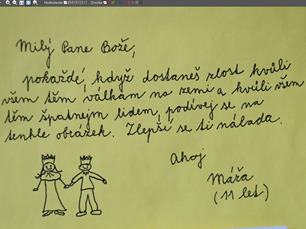 Milý Pane Bože,
pokaždé, když dostaneš zlost kvůli
všem těm válkám na zemi a kvůli všem
těm špatnejm lidem, podívej se na
tenhle obrázek. Zlepší se ti nálada.
Ahoj
Mářa
(11 let)